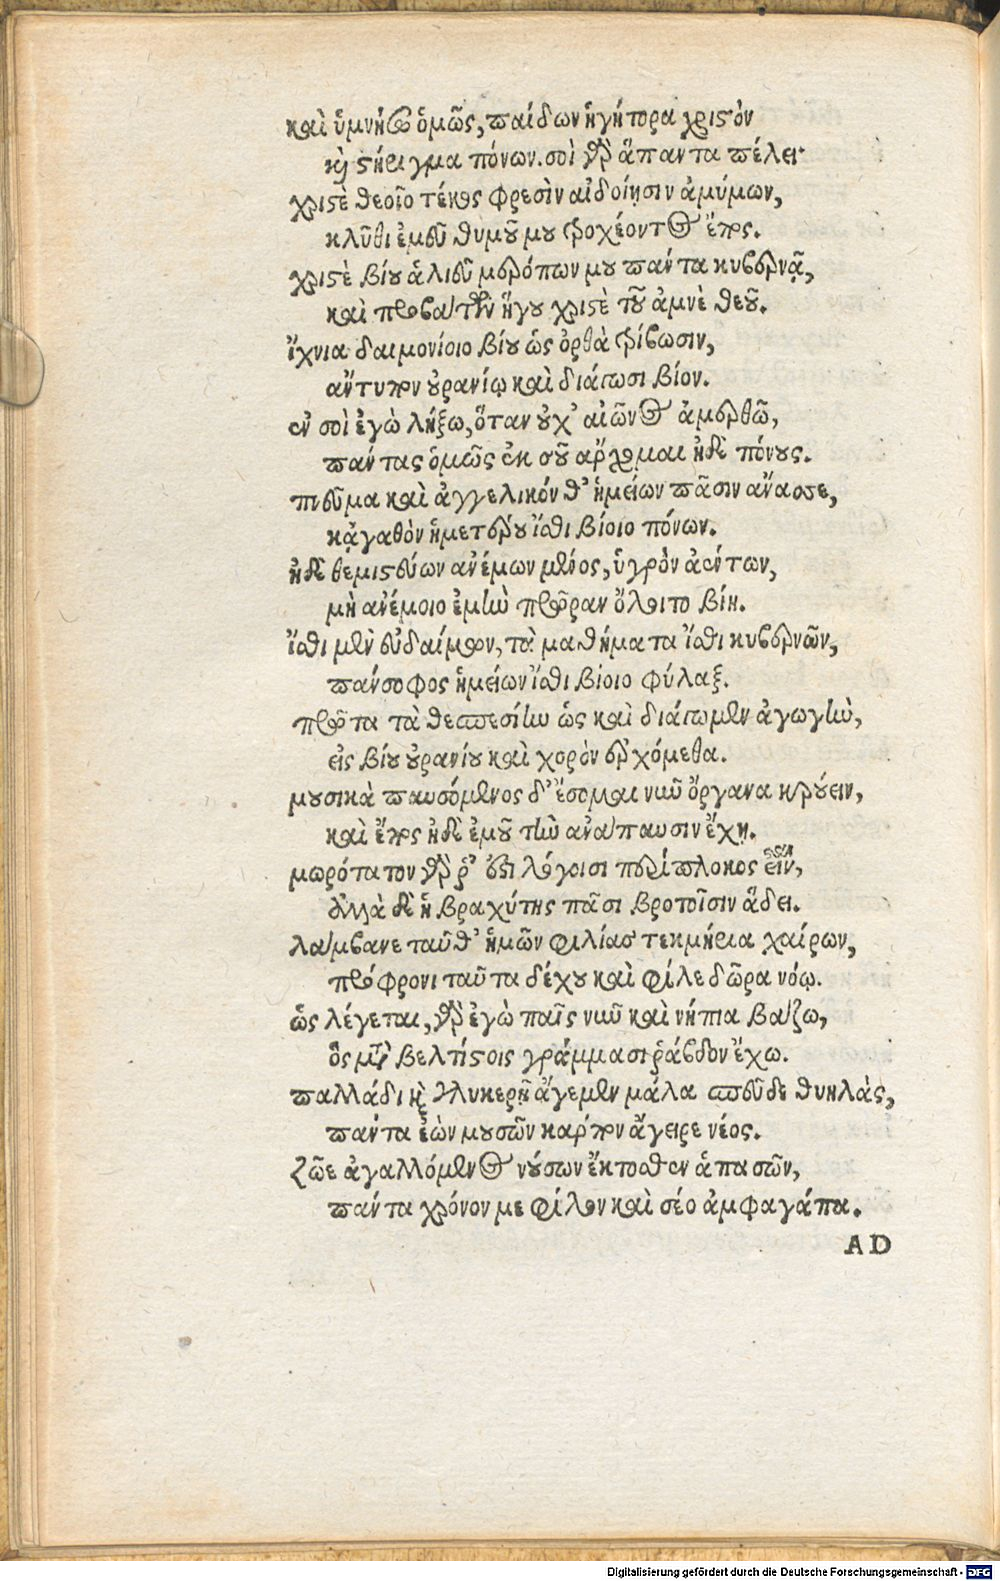 καὶ ὑμνήσω ὁμῶς, παίδων ἡγήτορα χριστὸν
καὶ στήριγμα πόνων. σοὶ γὰρ ἅπαντα πέλει·
χριστὲ θεοῖο τέκος φρεσὶν αἰδοίῃσιν ἀμύμων,
κλῦθι ἐμεῦ θυμοῦ μου προχέοντος ἔπος.
χριστὲ βίου ἁλιεῦ μερόπων μου πάντα κυβερνᾷ,
καὶ προβάτων ἡγοῦ χριστὲ τοῦ ἀμνὲ θεοῦ.
ἴχνια δαιμονίοιο βίου ὡς ὀρθὰ τρίβωσιν,
ἄντυπον οὐρανίῳ καὶ διάγωσι βίον.
ἐν σοὶ ἐγὼ λήξω, ὅταν οὐχ' αἰῶνος ἀμερθῶ,
πάντας ὁμῶς ἐκ σοῦ ἄρχομαι ἠδὲ πόνους.
πνεῦμα καὶ ἀγγελικόν θ' ἡμείων πᾶσιν ἄνασσε,
κᾀγαθὸν ἡμετέρου ἴσθι βίοιο πόνων.
ἠδὲ θεμιστεύων ἀνέμων μένος, ὑγρὸν ἀέντων,
μὴ ἀνέμοιο ἐμὴν πρῶραν ὄλοιτο βίη.
ἴσθι μὲν εὐδαίμων, τὰ μαθήματα ἴσθι κυβερνῶν,
πάνσοφος ἡμείων ἴσθι βίοιο φύλαξ.
πρῶτα τὰ θεσπεσίην ὡς καὶ διάγωμεν ἀγωγὴν,
εἰς βίου οὐρανίου καὶ χορὸν ἐρχόμεθα.
μουσικὰ παυσόμενος δ' ἔσομαι νῦν ὄργανα κρούειν,
καὶ ἔπος ἠδὲ ἐμοῦ τὴν ἀνάπαυσιν ἔχῃ.
μωρότατον γὰρ ῥ' ἐπὶ λόγοισι περίπλοκος εἶναι,
ἀλλὰ δὲ ἡ βραχύτης πᾶσι βροτοῖσιν ἅδει.
λάμβανε ταῦθ' ἡμῶν φιλίας τεκμήρια χαίρων,
πρόφρονι ταῦτα δέχου καὶ φίλε δῶρα νόῳ.
ὡς λέγεται, γὰρ ἐγὼ παῖς νῦν καὶ νήπια βάζω,
ὃς μετὰ βελτίστοις γράμμασι ῥάβδον ἔχω.
παλλάδι καὶ γλυκερῇ ἄγεμεν μάλα σπεῦδε θυηλὰς,
πάντα ἐὼν μουσῶν καρπὸν ἄγειρε νέος.
ζῶε ἀγαλλόμενος νούσων ἔκτοσθεν ἁπασῶν,
πάντα χρόνον με φίλον καὶ σέο ἀμφαγάπα.
AD
Digitalisierung gefördert durch die Deutsche Forschungsgemeinschaft - DFG